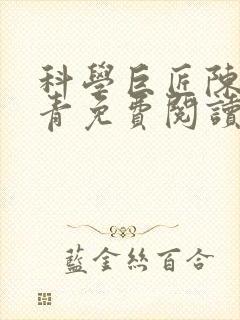 科學巨匠陳
青免費閱讀
藍金絲百合